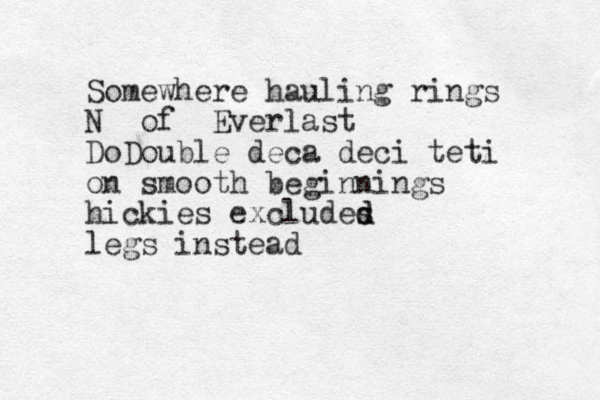 Somewhere hauling rings
N of Everlast
DoDouble deca deci teti
on smooth beginnings
hickies excluded
legs instead